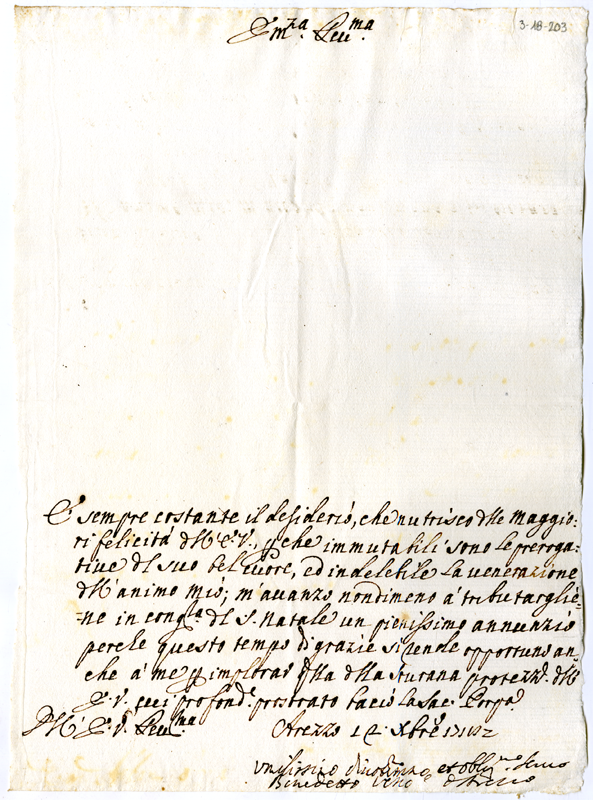 3-18-203
Em.za Reu.ma
È sempre costante il desiderio, che nutrisco dlle Maggio:
ri felicità dll' E. V. p che immutabili sono le preroga=
tiue dl suo bel Cuore, ed indelebile la uenerazione
dll' animo mio; m'auanzo nondimeno à tributarglie=
=ne in cong.a dl S. Natale un pienissimo annunzio
perche questo tempo di grazie si rende opportuno an
che à me p implorar qlla dlla sourana protezz. dll'
E. V. cui profond. prostrato bacio la Sac. Porpa
Dll' E. V. Reu.ma Arezzo Xbre
Vmilissimo et obblig.mo Seruo
Benedetto d'Arezzo